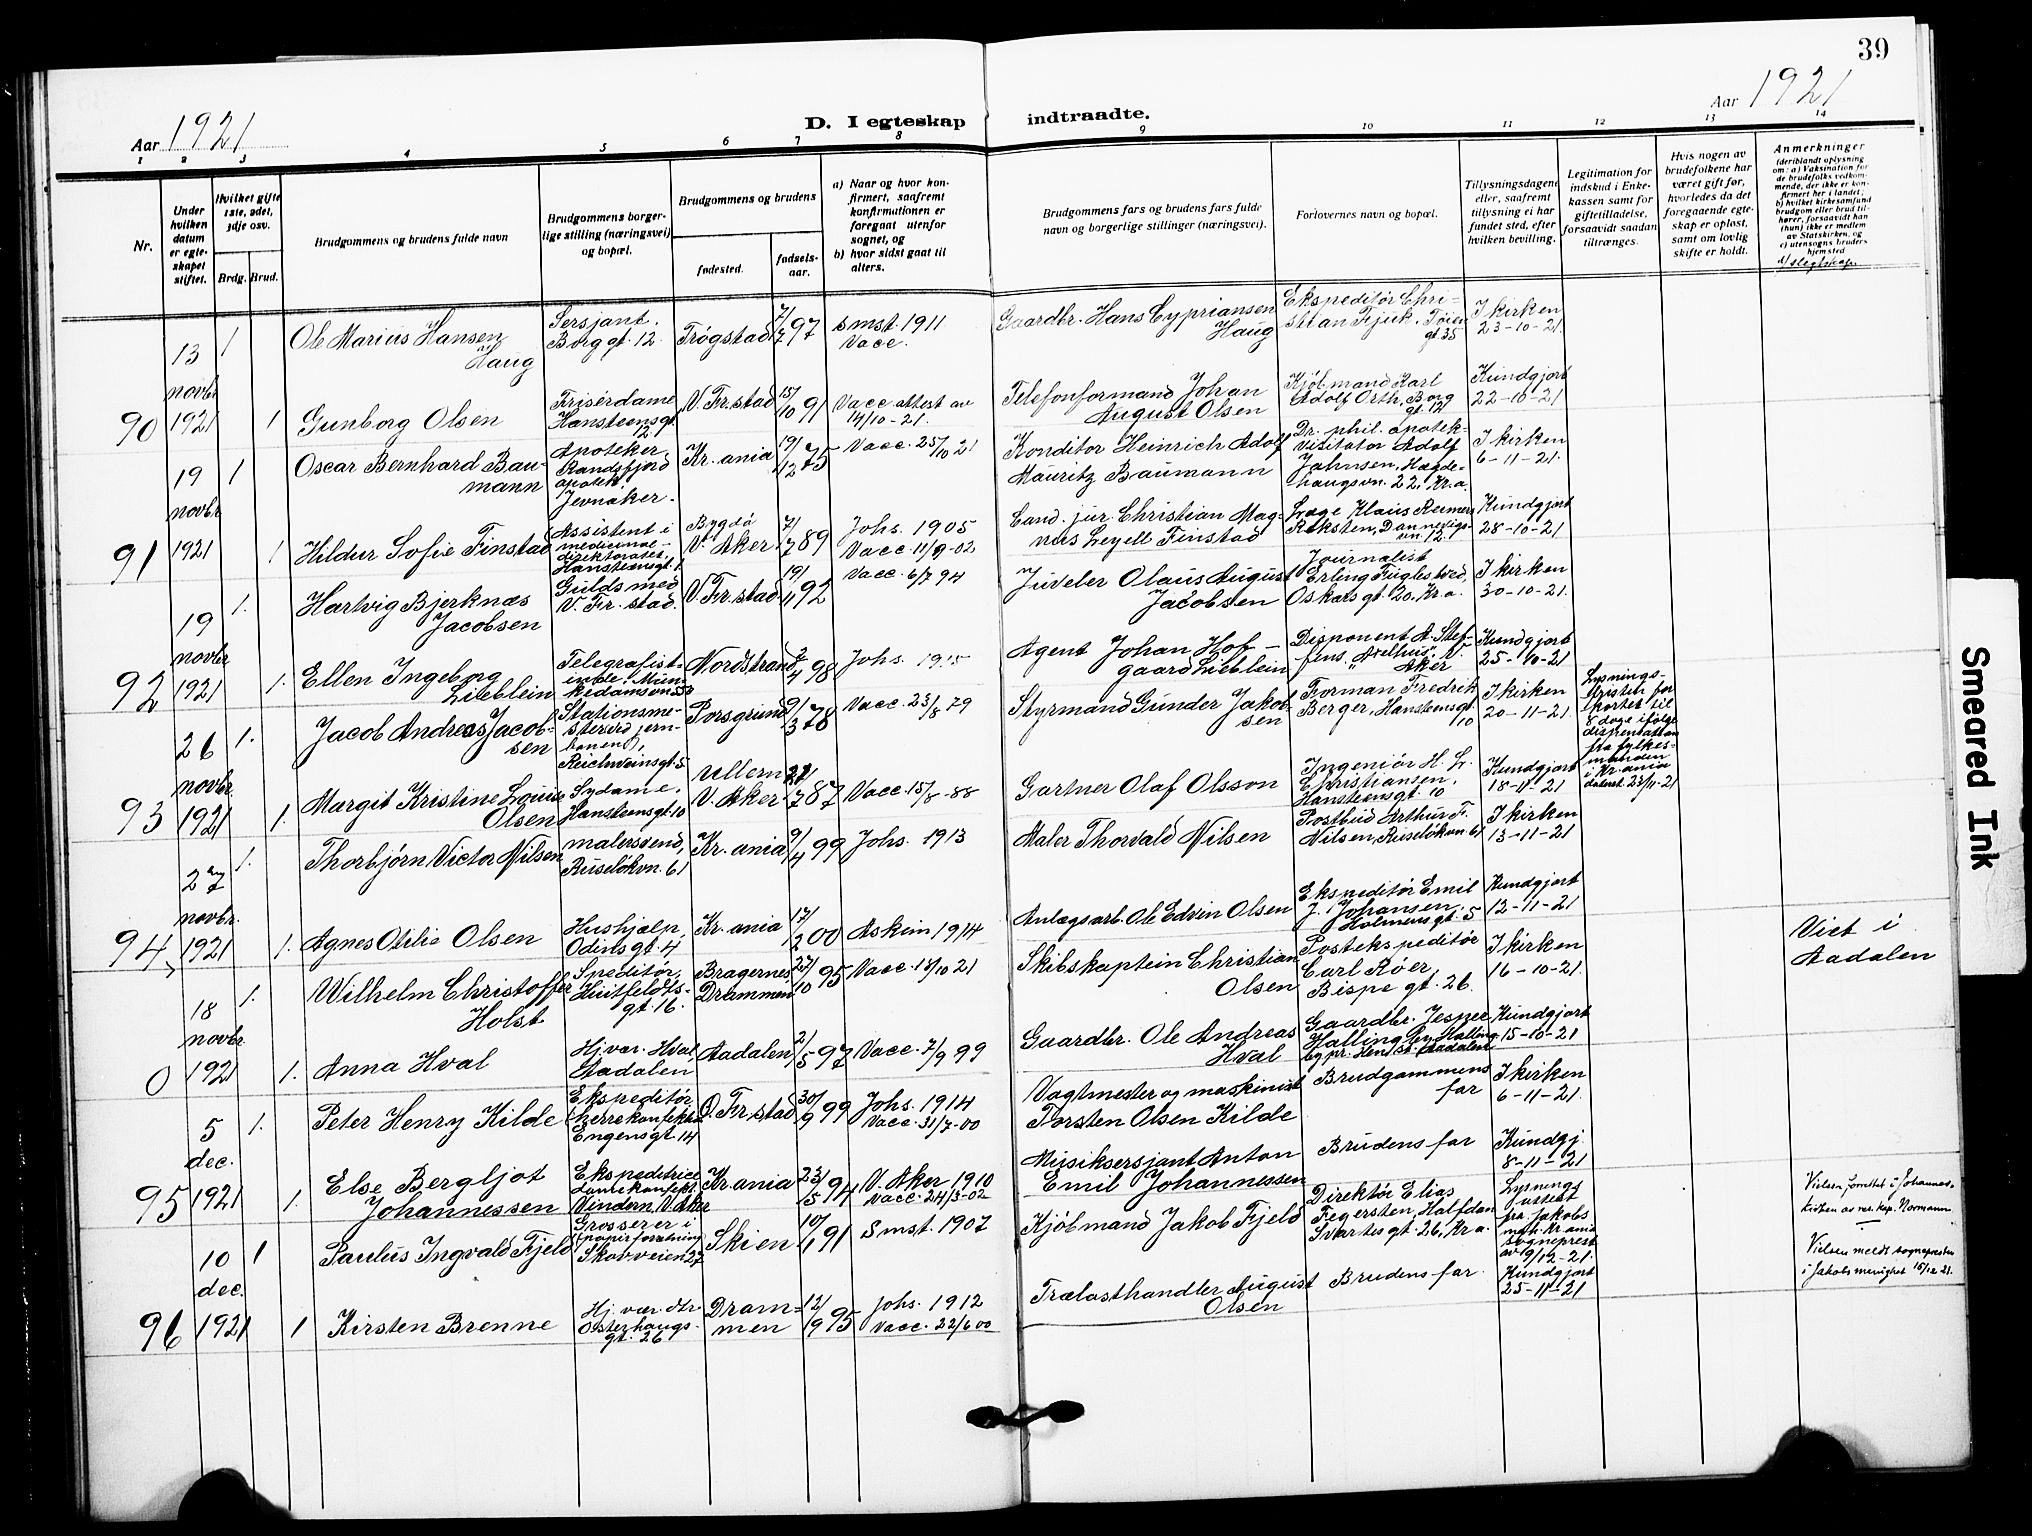 39
Aar 1921
D. I egteskap indtraadte.
Aar 1921
1 2 3 4 5 6 7 8 9 10 11 12 13 14
Nr.
Under hvilken datum er egteskapet stiftet.
Hvilket gifte 1ste, 2det, 3dje osv.
Brdg. Brud.
Brudgommens og brudens fulde navn
Brudgommens borgerlige stilling (næringsvei) og bopæl.
Brudgommens og brudens
fødested.
fødselsaar.
a) Naar og hvor konfirmert, saafremt konfirmationen er foregaat utenfor sognet, og
b) hvor sidst gaat til alters.
Brudgommens fars og brudens fars fulde navn og borgerlige stillinger (næringsvei).
Forlovernes navn og bopæl.
Tillysningsdagene eller, saafremt tillysning ei har fundet sted, efter hvilken bevilling.
Legitimation for indskud i Enkekassen samt for giftetilladelse, forsaavidt saadan tiltrænges.
Hvis nogen av brudefolkene har været gift før, hvorledes da det foregaaende egteskap er opløst, samt om lovlig skifte er holdt.
Anmerkninger
(deriblandt oplysning om: a) Vaksination for de brudefolks vedkommende, der ikke er konfirmert her i landet; b) hvilket kirkesamfund brudgom eller brud tilhører, forsaavidt han (hun) ikke er medlem av Statskirken, og c) utensogns bruders hjemsted
d) slegtskap.
90
13 novbr 1921
1 Ole Marius Hansen Haug
Sersjant. Borggt. 12.
Trøgstad 7/7 97
Smst. 1911 Vacc.
Gaardbr. Hans Cypriansen Haug
Ekspeditör Christian Fjuk, Tøiengt. 35
I kirken 23-10-21.
1 Gunborg Olsen
Friserdame Hansteensgt. 12
V. Fr.stad 15/10 91
Vacc. attest av 14/10-21.
Telefonformand Johan August Olsen
Kjøbmand Karl Adolf Orth, Borg gt. 12
Kundgjort 22-10-21
91
19 novbr. 1921
1 Oscar Bernhard Baumann
Apoteker Randsfjord apotek Jevnaker.
Kr.ania 19/12 75
Vacc. 25/10 21
Konditor Heinrich Adolf Mauritz Baumann
Dr. phil. apotekvisitator Adolf Johnsen, Hægdehaugsvn. 22, Kr.a.
I kirken 6-11-21.
1 Hildur Sofie Finstad
Assistent i medicinaldirektoratet, Hansteensgt. 1
Bygdø V. Aker 7/7 89
Johs. 1905 Vacc. 11/9-02
Cand. jur. Christian Magnus Leyell Finstad
Læge Klaus Reimers Raksten, Dannevigsvn. 12.
Kundgjort 28-10-21
92
19 novbr 1921
1. Hartvig Bjerknæs Jacobsen
Guldsmed V. Fr.stad.
V. Fr.stad 19/4 92
Vacc. 6/7 94
Juveler Olaus August Jacobsen
Journalist Erling Fuglestved, Oskarsgt. 20. Kr.a.
I kirken 30-10-21.
1. Ellen Ingeborg Lieblein
Telegrafistinde. Munkedamsvn 53
Nordstrand 2/4 98
Johs. 1915
Agent Johan Hofgaard Lieblein
Disponent A. Steffens, "Axelhus", V. Aker
Kundgjort 25-10-21
93
26 novbr. 1921
1. Jacob Andreas Jacobsen
Stationsmester ved jernbanen, Reichweinsgt. 5
Porsgrund 9/3 78
Vacc. 23/8 79
Styrmand Gunder Jakobsen
Forman Fredrik Berger, Hansteensgt. 10
I kirken 20-11-21.
Lysningsfristen forkortet til 8 dage ifølge dispensation fra fylkesmanden i Kr.ania datert 23/11-21
1. Margit Kristine Louise Olsen
Sydame, Hansteensgt. 10
Ullern V. Aker 21/7 87
Vacc. 15/8-88
Gartner Olaf Olsson
Ingeniør H. L. Christiansen, Hansteensgt. 10
Kundgjort 18-11-21
94
27 novbr. 1921
1. Thorbjörn Victor Nilsen
malersvend, Ruseløkvn. 61
Kr.ania 9/4 99
Johs. 1913
Maler Thorvald Nilsen
Postbud Arthur Fr. Nilsen, Ruseløkvn. 61
I kirken 13-11-21
1. Agnes Otilie Olsen
Hushjælp, Odinsgt. 4
Kr.ania 17/2 00
Askim 1914
Anlægsarb. Ole Edvin Olsen
Ekspeditör Emil J. Johansen, Holmensgt. 5
Kundgjort 12-11-21
0
18 novbr 1921
1. Wilhelm Christoffer Holst
Speditör, Huitfeldtsgt. 16.
Bragernes Drammen 27/10 95
Vacc. 18/10 21
Skibskaptein Christian Olsen
Postekspeditör Carl Röer, Bispegt. 26.
I kirken 16-10-21.
Viet i Aadalen
1. Anna Hval
Hj.vær. Hval Aadalen
Aadalen 2/5 97
Vacc. 7/9 99
Gaardbr. Ole Andreas Hval
Gaardbr. Jesper Halling, Halling pr. Hen st. Aadalen
Kundgjort 15-10-21
95
5 dec. 1921
1. Peter Henry Kilde
Ekspeditör (herrekonfektion) Engensgt. 14
Ö. Fr.stad 30/9 99
Johs. 1914 Vacc. 31/7-00
Vagtmester og maskinist Torsten Olsen Kilde
Brudgommens far
I kirken 6-11-21.
1. Else Bergljot Johannessen
Ekspeditrice Damekonfekt. Vindern V. Aker
Kr.ania 23/5 94
V. Aker 1910 Vacc. 24/3-02
Musiksersjant Anton Emil Johannessen
Brudens far
Kundgj. 8-11-21
Vielsen forrettet i Johanneskirken av res. kap. Normann
96
10 dec. 1921
1 Paulus Ingvald Fjeld
Grosserer i papirforretning Skovveien 27
Skien 10/1 91
Smst. 1907
Kjøbmand Jakob Fjeld
Direktør Elias Fegersten, Halfdan Svartesgt. 26, Kr.a.
Lysningsattest fra Jakobs mgh. Kr.ania sogneprest av 9/12-21.
Vielsen meldt sognepresten i Jakobs menighet 15/12 21.
1 Kirsten Brenne
Hj. vær. dtr Osterhausgt. 26
Drammen 12/9 95
Johs. 1912 Vacc. 22/6 00
Trælasthandler August Olsen
Brudens far.
Kundgjort 25-11-21
Smeared Ink